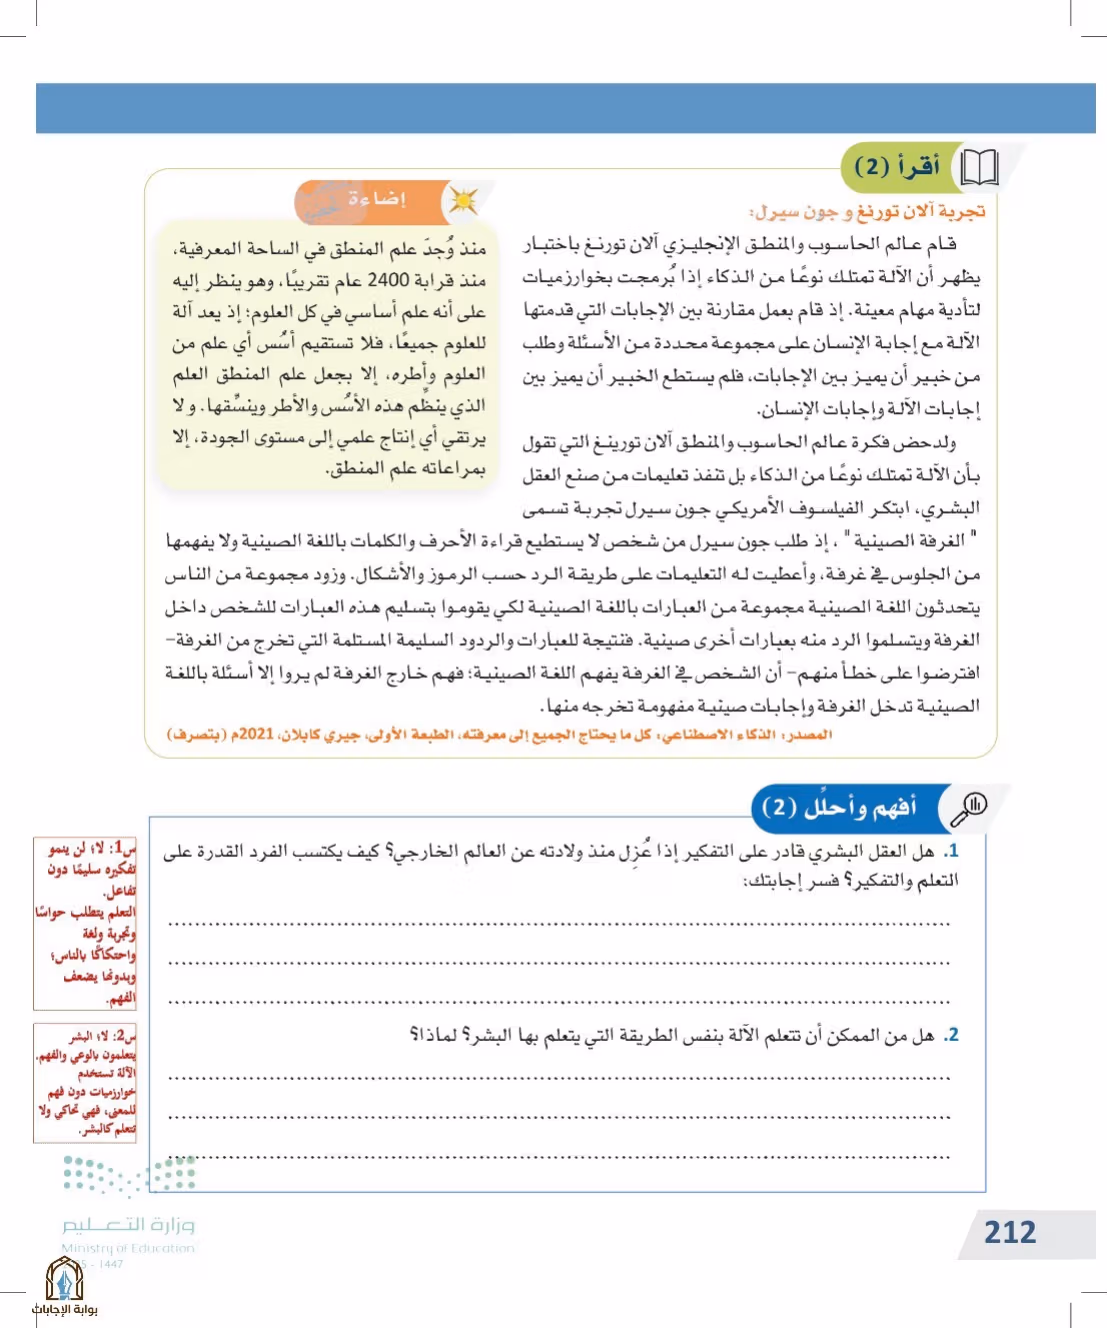 أقرأ (2)
تجربة آلان تورنغ و جون سيرل:
قام عالم الحاسوب والمنطق الإنجليزي آلان تورنغ باختبار
يظهر أن الآلة تمتلك نوعًا من الذكاء إذا بُرمجت بخوارزميات
لتأدية مهام معينة. إذ قام بعمل مقارنة بين الإجابات التي قدمتها
الآلة مع إجابة الإنسان على مجموعة محددة من الأسئلة وطلب
من خبير أن يميز بين الإجابات، فلم يستطع الخبير أن يميز بين
إجابات الآلة وإجابات الإنسان.
ولدحض فكرة عالم الحاسوب والمنطق آلان تورينغ التي تقول
بأن الآلة تمتلك نوعًا من الذكاء بل تنفذ تعليمات من صنع العقل
البشري، ابتكر الفيلسوف الأمريكي جون سيرل تجربة تسمى
" الغرفة الصينية " ، إذ طلب جون سيرل من شخص لا يستطيع قراءة الأحرف والكلمات باللغة الصينية ولا يفهمها
من الجلوس في غرفة، وأعطيت له التعليمات على طريقة الرد حسب الرموز والأشكال. وزود مجموعة من الناس
يتحدثون اللغة الصينية مجموعة من العبارات باللغة الصينية لكي يقوموا بتسليم هذه العبارات للشخص داخل
الغرفة ويتسلموا الرد منه بعبارات أخرى صينية. فنتيجة للعبارات والردود السليمة المستلمة التي تخرج من الغرفة-
افترضوا على خطأ منهم- أن الشخص في الغرفة يفهم اللغة الصينية؛ فهم خارج الغرفة لم يروا إلا أسئلة باللغة
الصينية تدخل الغرفة وإجابات صينية مفهومة تخرجه منها.
المصدر: الذكاء الاصطناعي: كل ما يحتاج الجميع إلى معرفته، الطبعة الأولى، جيري كابلان، 2021م (بتصرف)
إضاءة
منذ وُجدَ علم المنطق في الساحة المعرفية،
منذ قرابة 2400 عام تقريبًا، وهو ينظر إليه
على أنه علم أساسي في كل العلوم؛ إذ يعد آلة
للعلوم جميعًا، فلا تستقيم أسُس أي علم من
العلوم وأطره، إلا بجعل علم المنطق العلم
الذي ينظِّم هذه الأسُس والأطر وينسِّقها. و لا
يرتقي أي إنتاج علمي إلى مستوى الجودة، إلا
بمراعاته علم المنطق.
أفهم وأحلِّل (2)
1. هل العقل البشري قادر على التفكير إذا عُزِل منذ ولادته عن العالم الخارجي؟ كيف يكتسب الفرد القدرة على
التعلم والتفكير؟ فسر إجابتك:
2. هل من الممكن أن تتعلم الآلة بنفس الطريقة التي يتعلم بها البشر؟ لماذا؟
س1: لا؛ لن ينمو
تفكيره سليمًا دون
تفاعل.
التعلم يتطلب حواسًا
وتجربة ولغة
واحتكاكًا بالناس؛
وبدونها يضعف
الفهم.
س2: لا؛ البشر
يتعلمون بالوعي والفهم.
الآلة تستخدم
خوارزميات دون فهم
للمعنى، فهي تحاكي ولا
تتعلم كالبشر.
وزارة التعليم
Ministry of Education
5 - 1447
212
بوابة الإجابات